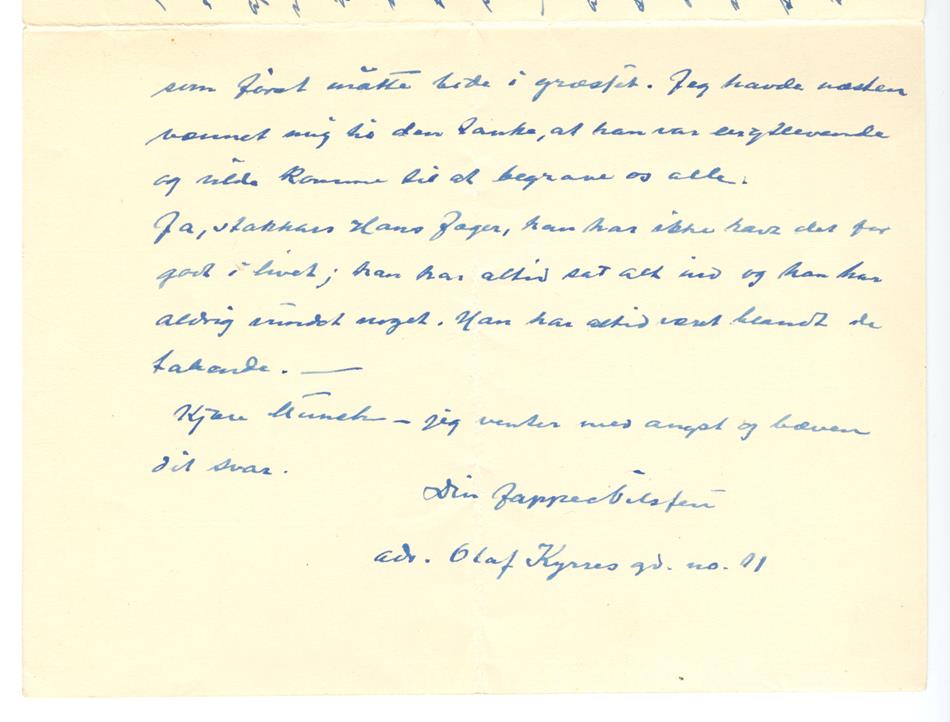 som først måtte bide i græsset. Jeg havde næsten
vænnet mig til den tanke, at han var langtlevende
og vilde komme til at begrave os alle.
Ja, stakkars Hans Jæger, han har ikke havt det for
godt i livet; han har altid sat alt ind og han har
aldrig vundet noget. Han har altid været blandt de
tabende. —
Kjære Munch – jeg venter med angst og bæven
dit svar.
Din Jappe Nilssen
adr. Olaf Kyrres gd. no. 11